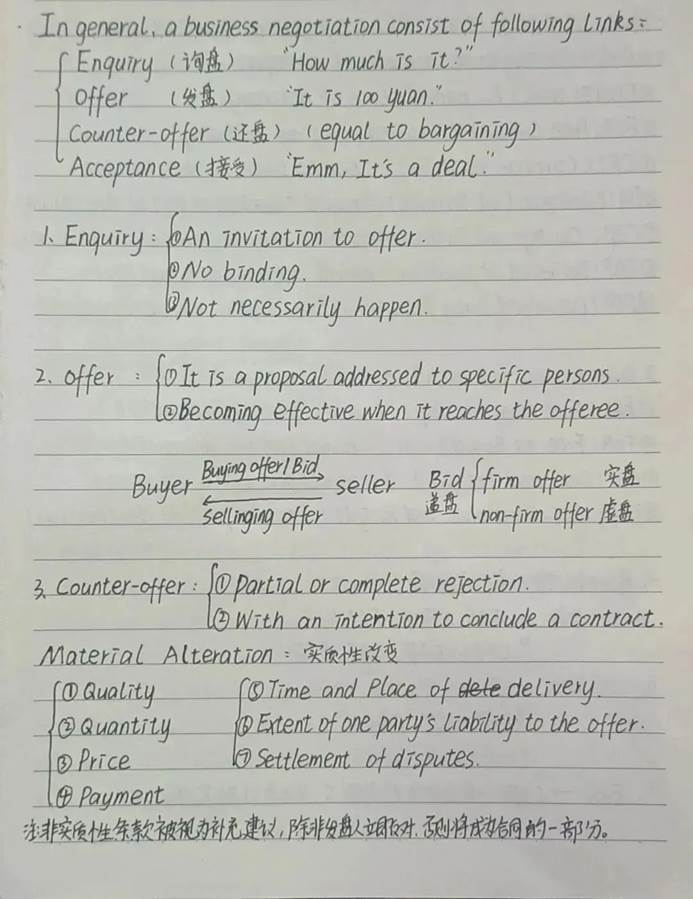 In general, a business negotiation consist of following links:
Enquiry (询盘) "How much is it?"
Offer (发盘) "It is 100 yuan."
Counter-offer (还盘) (equal to bargaining)
Acceptance (接受) "Emm, It's a deal."
1. Enquiry: ①An invitation to offer.
②No binding.
③Not necessarily happen.
2. Offer: ①It is a proposal addressed to specific persons.
②Becoming effective when it reaches the offeree.
Buyer Buying offer/Bid seller Bid firm offer 实盘
Sellinging offer 递盘 non-firm offer 虚盘
3. Counter-offer: ①Partial or complete rejection.
②With an intention to conclude a contract.
Material Alteration: 实质性改变
①Quality ⑤Time and Place of dete delivery.
②Quantity ⑥Extent of one party's liability to the offer.
③Price ⑦Settlement of disputes.
④Payment
注:非实质性条款被视为补充建议,除非发盘人立即反对,否则将成为合同的一部分。